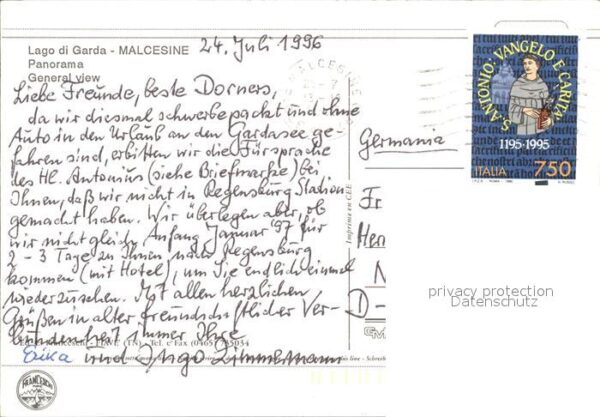 Lago di Garda - MALCESINE
Panorama
General view
24. Juli 1996
Liebe Freunde, beste Dorners,
da wir diesmal schwerbepackt und ohne
Auto in den Urlaub an den Gardasee ge-
fahren sind, erbitten wir die Fürsprache
des Hl. Antonius (siehe Briefmarke) bei
Ihnen, daß wir nicht in Regensburg Station
gemacht haben. Wir überlegen aber, ob
wir nicht gleich Anfang Januar '97 für
2-3 Tage zu Ihnen nach Regensburg
kommen (mit Hotel), um Sie endlich einmal
wiederzusehen. Mit allen herzlichen
Grüßen in alter freundschaftlicher Ver-
bundenheit immer Ihre
Erika und Ingo Zimmermann
MALCESINE
S. ANTONIO: VANGELO E CARITÀ
1195-1995
ITALIA 750
Germania
Fr
Her
N
D-
privacy protection
Datenschutz
Imprimé en CEE
(TN) - Tel. e Fax (0465)